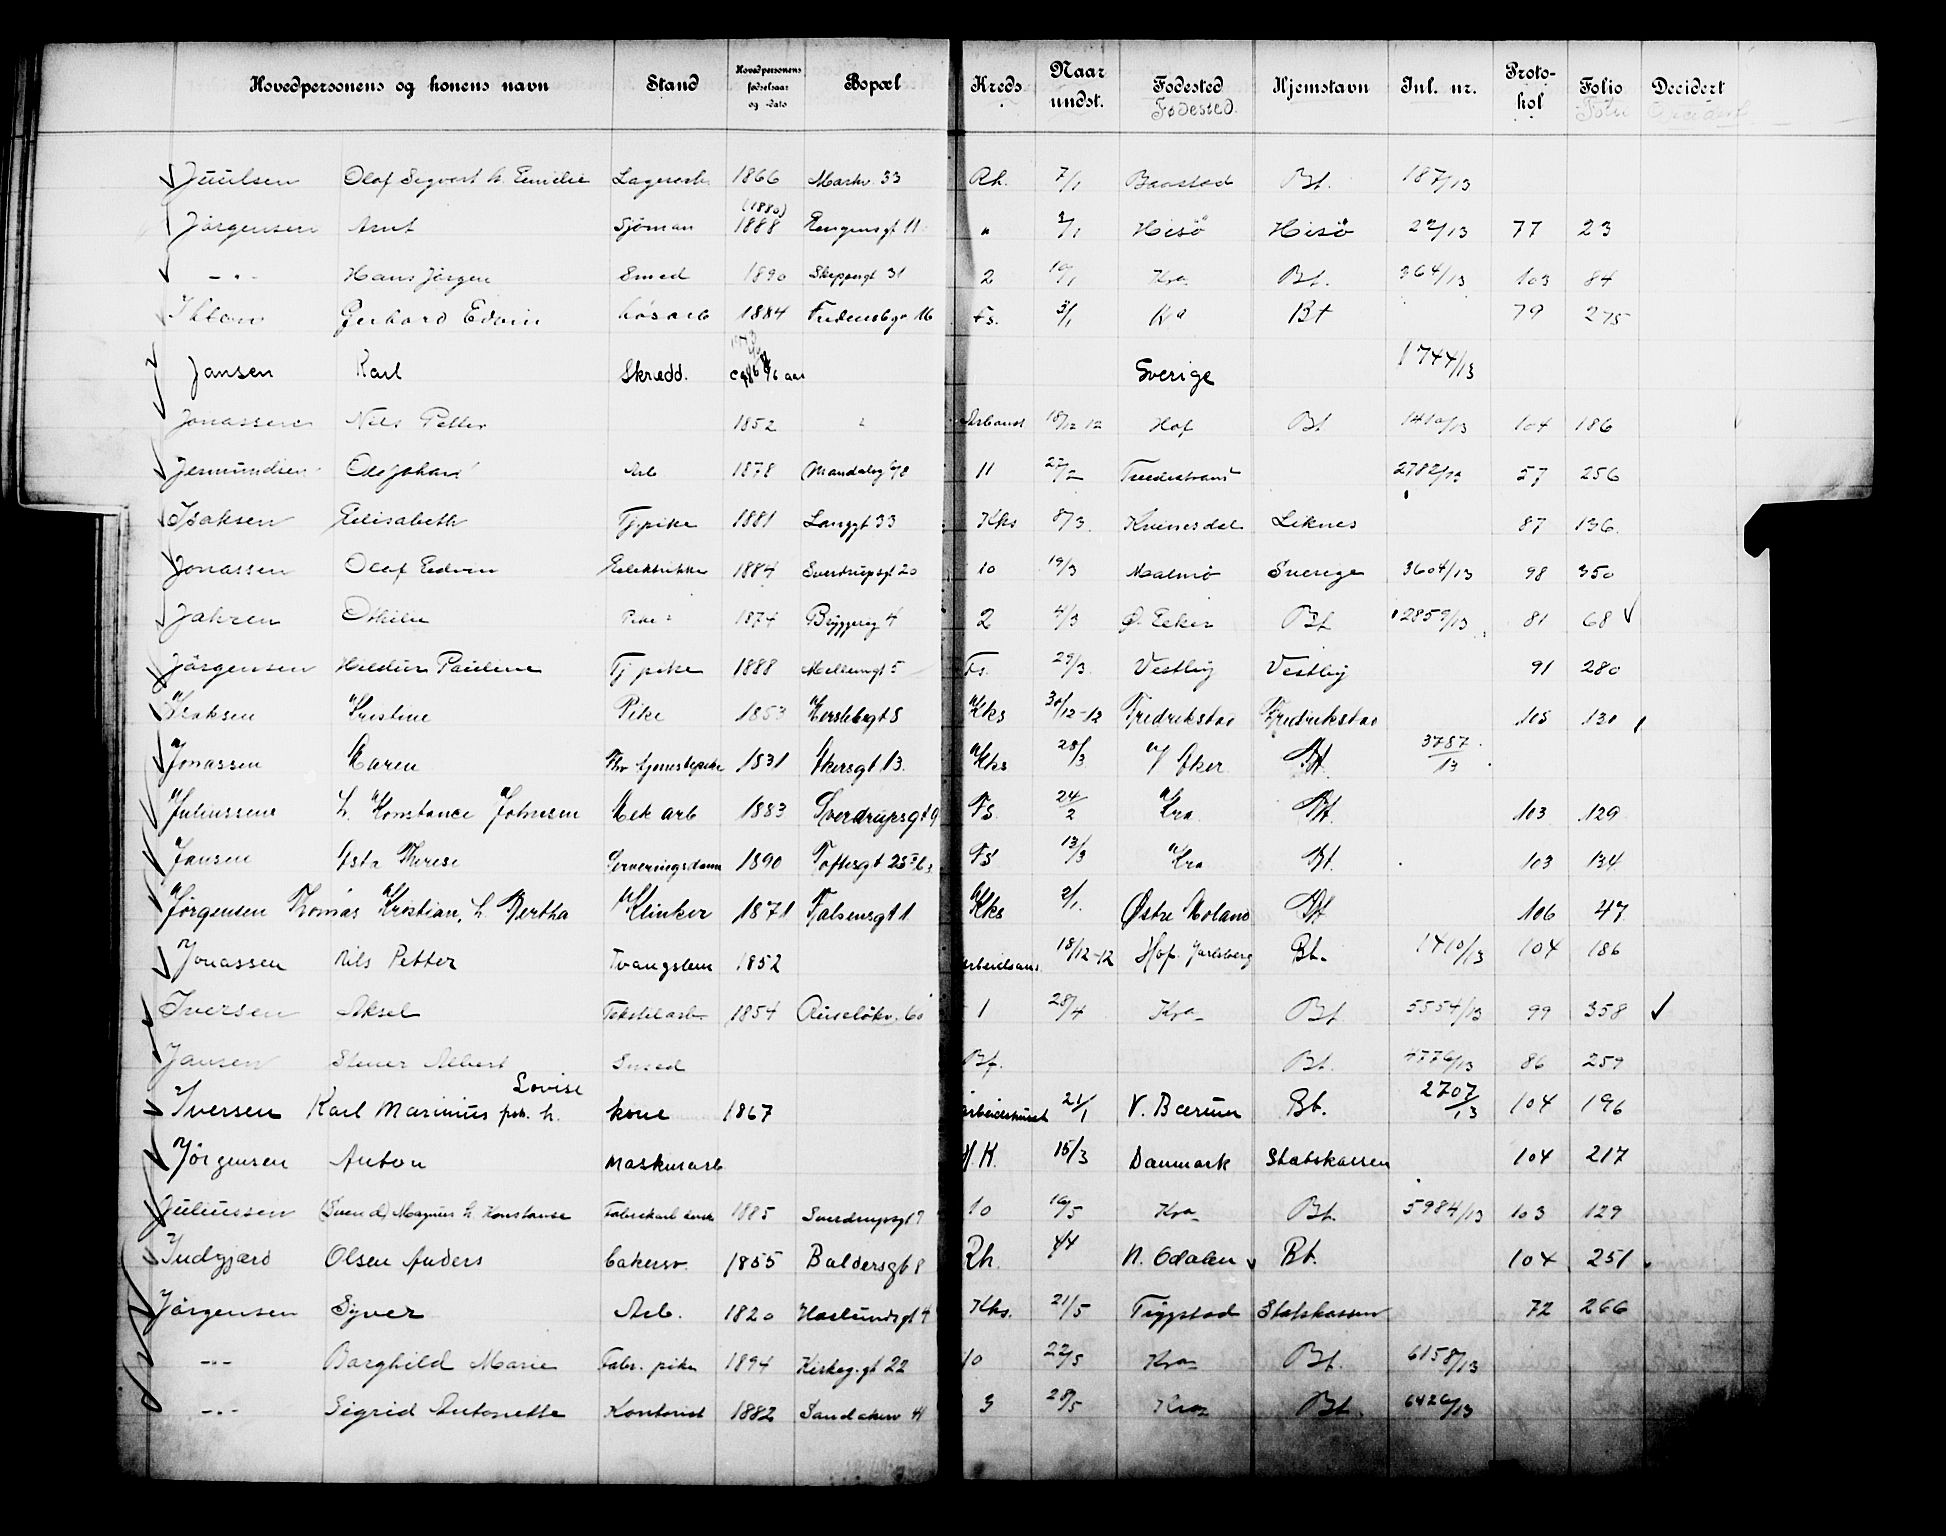 Hovedpersonens og konens navn Stand Hovedpersonens fødselsaar og -dato Bopæl Kreds Naar undst. Fødested Hjemstavn Inl. nr. Proto-kol Folio Decidert
Fødested Folio Decidert
Juulsen Olaf Segvart h. Emilie Lagerarb. 1866 Markv. 33 Rh. 7/1 Baastad Bt. 187/13
Jørgensen Arnt Sjöman (1880) 1888 11 " 2/1 Hisö Hisö 22/13 77 23
- " - Hans Jørgen Smed 1890 31 2 10/1 Kra Bt. 364/13 103 84
Gerhard Edvin Løsarb 1884 Fredensbgv 16 Fs. 3/1 Kra Bt 79 275
Jansen Karl Skrædd. aar Sverige 1744/13
Jonassen Nils Petter 1852 18/12 12 Hof Bt 1410/13 104 186
Jermundsen Ole Johan Arb 1878 11 27/2 2782/13 57 256
Isaksen Elisabeth Tjpike 1881 Langgt 33 Kks 8/3 Kvinesdal Liknes 87 136
Jonassen Olaf Edvin 1884 Sverdrupsgt 20 10 19/3 Malmö Sverige 3604/13 98 350
Jahren Othilie Pike 1874 Byggerig 4 2 4/3 Ø. Eeker Bt 2859/13 81 68
Jørgensen Hildur Pauline Tj pike 1888 Mellemgt 5 Fs. 29/3 Vestby Vestby 91 280
Isaksen Kristine Pike 1853 Herslebsgt 8 Kks 30/12-12 Fredrikstad Fredrikstad 105 130
Jonassen Karen Fhv tjenestepike 1831 Akersgt. 13. Kks 28/3 V Aker Bt. 3787/13
Juliussen h. Konstance Johnsen Mek arb 1883 Sverdrupsgt 9 Fs. 24/2 Kra Bt. 103 129
Jansen Asta Therese Serveringsdame 1890 Toftesgt 25 Fs 13/3 Kra Bt. 103 134
Jørgensen Thomas Kristian, h. Bertha Klinker 1871 Falsensgt 1 Kks 2/1. Østre Moland Bt 106 47
Jonassen Nils Petter Tvangslem 1852 18/12-12 Hof. Jarlsberg Bt. 1410/13 104 186
Iversen Aksel Tekstilarb. 1854 Ruseløkv. 60 1 28/4 Kra Bt. 5554/13 99 358
Jansen Stener Albert Smed Bf. Bt. 4776/13 86 259
Lovise
Iversen Karl Marinius h. kone 1867 21/1 V. Bærum Bt. 2707/13 104 196
Jörgensen Anton Maskinarb H. K. 15/3 Danmark Statskassen 104 217
Juliussen (Svend) Magnus h. Konstanse 1885 Sverdrupsgt 9 10 16/5 Kra Bt. 5984/13 103 129
Indgjærd Olsen Anders 1855 Baldersgt 8 Rh. 4/4 N. Odalen Bt. 104 251
Jørgensen Syver Arb. 1820 Haslundsgt 4 Kks. 21/5 Tryggstad Statskassen 72 266
- " - Borghild Marie Fabr. pike 1894 Kirkeg.gt 22 10 22/5 Kra Bt. 6158/13
- " - Sigrid Antonette Kontorist 1882 Sandakerv 3 28/5 Kra Bt. 6426/13